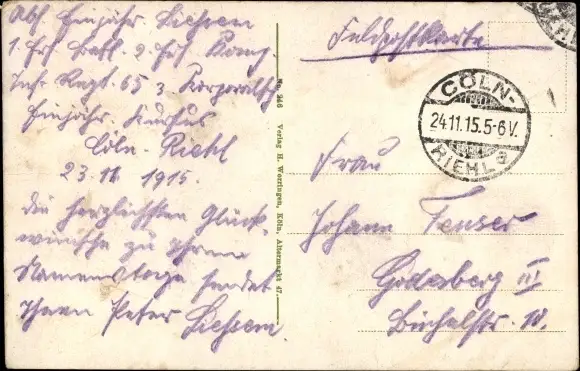 Abs. Einjähr. Liessem
1. Ers. Batl. 2. Ers. Komp.
Inf. Regt. 65 3. Korporalsch.
Einjähr. Kursus
Cöln-Riehl
23.11.1915.
Die herzlichsten Glück-
wünsche zu Ihrem
Namenstage sendet
Ihnen Peter Liessem.
No. 946 Verlag H. Worringen, Köln, Altermarkt 47.
Feldpostkarte
CÖLN-
24.11.15.5-6V.
RIEHL a
Frau
Johann Fenser
Godesberg III
Büchelstr. 10.